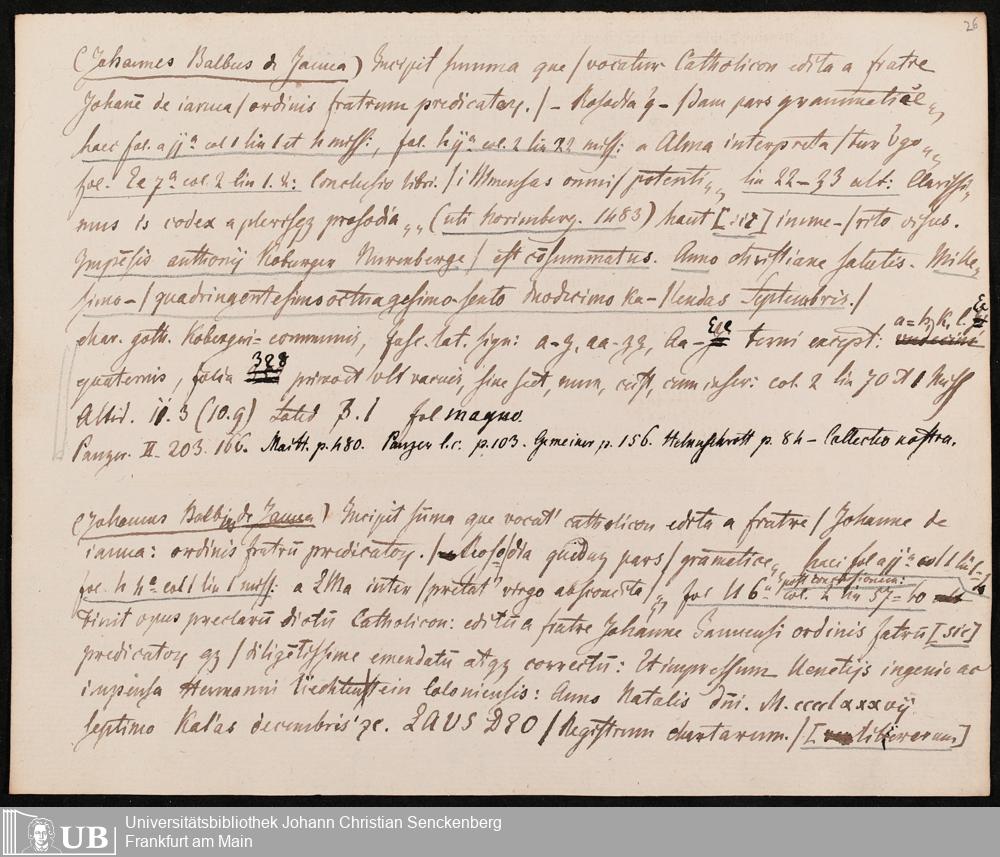 26
(Johannes Balbus de Janua) Incipit summa que / vocatur Catholicon edita a fratre
Johañe de ianua / ordinis fratrum predicatoꝝ. / - Rosodia q - / dam pars grammatice „
haec fol. a jj a col 1 lin 1 et h miss:, fol. h ij a col. 2 lin 22 miss: a Alma interpreta / tur v̊go „
fol. 7 a col. 2 lin 1. Conclusio libri. / i Mmensas omni / potenti „ lin 22-33 ult: Clarissi„
mus is codex a plerisqꝫ prosodia „ (uti Norimberg. 1483) haut [sic] inme- / rito visus.
Impēsis anthonij Koburger Nurenberge / est cōsummatus. Anno christiane salutis. Mille„
simo - / quadringentesimo octuagesimo sexto duodecimo Ka- / lendas Septembris. /
char. goth. Kobergeri communis, fasc. lat. sign: a-z, aa-zz, Aa- terni except: a=h, k, l.
quaternis, folia 328 primo et ult vacuis, sine sect, num, cust, cum inscr: col. 2 lin 70 et 1 miss
Altid. 11. 3 (10. 9) Lated 3. 1 fol magno.
Panzer. II. 203. 166. Maitt. p. 480. Panzer l.c. p. 103. Gemeiner p. 156. Helmschrott p. 84 - Collectio nostra.
(Johannes Balbus de Janua) Incipit sūma que vocat' catholicon edita a fratre / Johanne de
ianua: ordinis fratrū predicatoꝝ. / Rosodia quidam pars / gramatice „ haec fol a jj a col 1 lin 1
fol. h 4 a col 1 lin 1 miss: a LMa inter / pretat' virgo absconcita / „ fol 6 post conclusionem: col. 2 lin 57-60
Finit opus preclarū dictū Catholicon: editū a fratre Johanne Januensi ordinis fatrū [sic]
predicatoꝝ qꝫ / diligētissime emendatū atqꝫ correctū: Et impressum Uenetijs ingenio ac
inpensa Hermanni Liechtenstein Coloniensis: Anno Natalis dñi. M. cccclxxxvij.
septimo Kal'as decembris ꝛc. LAUS DEO / Registrum chartarum. /
UB Universitätsbibliothek Johann Christian Senckenberg
Frankfurt am Main